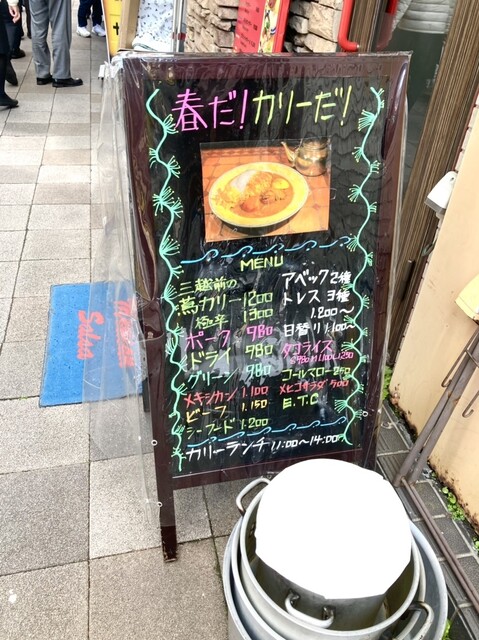 春だ!カリーだ!
MENU
三越前の
蔦カリー 1200
極辛 1300
ポーク 980
ドライ 980
グリーン 980
メキシカン 1.100
ビーフ 1.150
シーフード 1.200
アベック 2種
トレス 3種
1.200〜
日替り 1.100〜
タコライス
コールスロー 250
メヒコサラダ 500
E.T.C
カリーランチ 11:00〜14:00